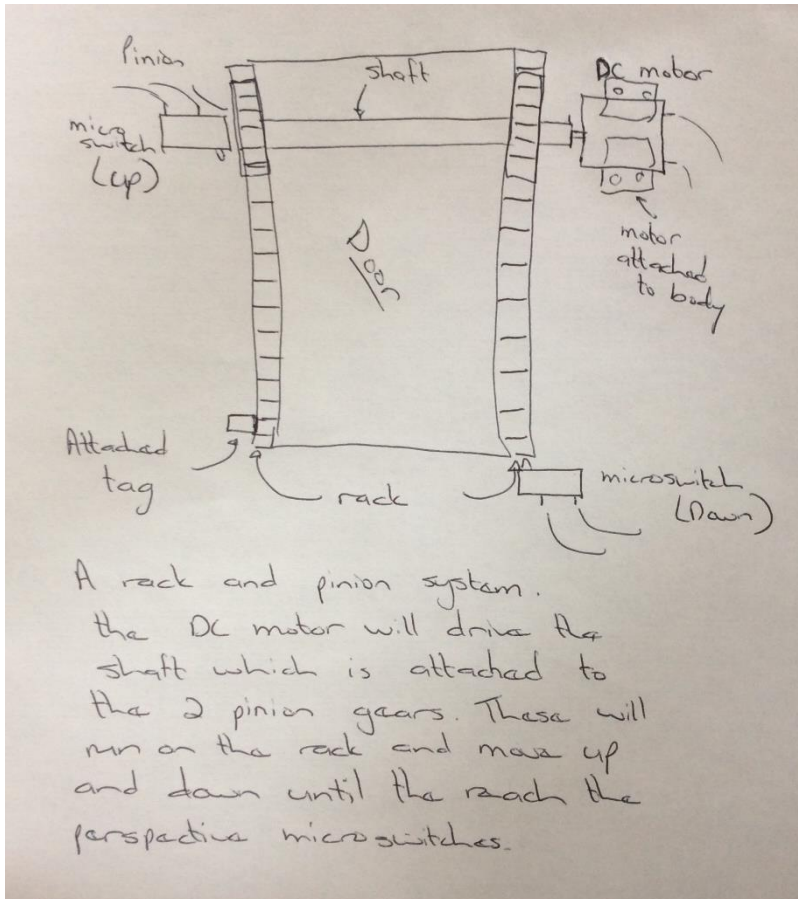 Pinion
shaft
DC motor
micro
switch
(up)
Door
motor
attached
to body
Attached
tag
rack
microswitch
(Down)
A rack and pinion system.
the DC motor will drive the
shaft which is attached to
the 2 pinion gears. These will
run on the rack and move up
and down until the reach the
perspective microswitches.